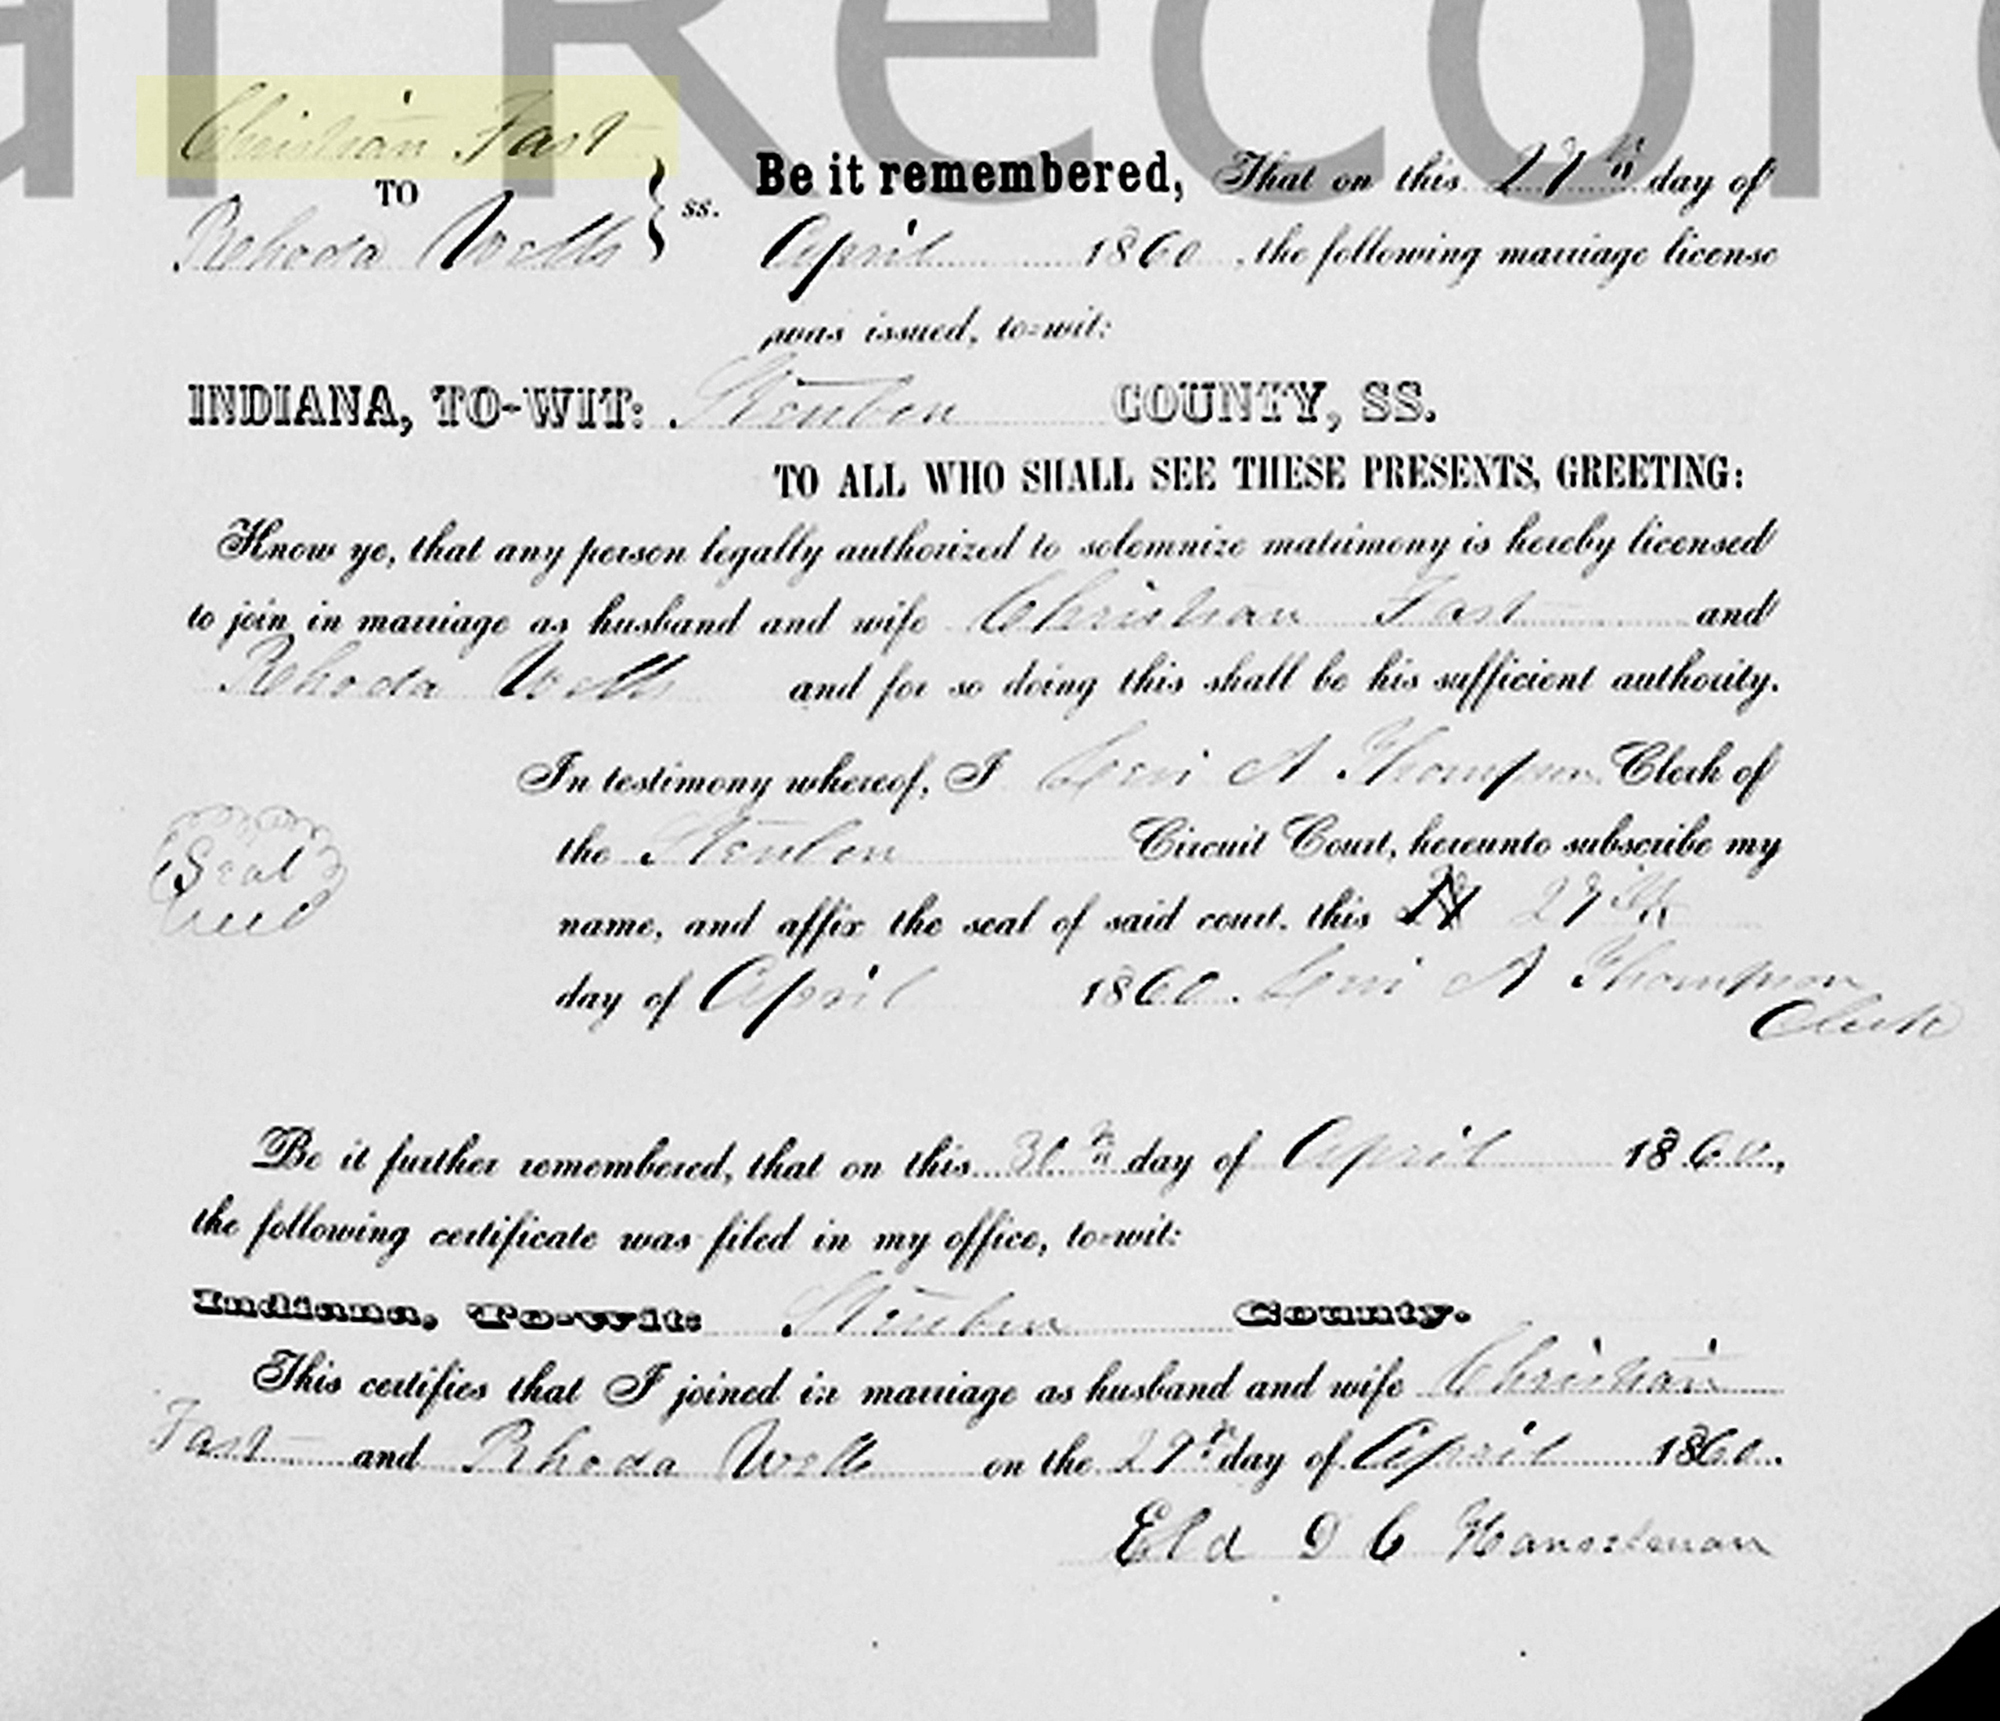 al Record
Christian Fast
TO
Rhoda Wells } ss.
Be it remembered, That on this 27th day of
April 1860, the following marriage license
was issued, to-wit:
INDIANA, TO-WIT: Steuben COUNTY, SS.
TO ALL WHO SHALL SEE THESE PRESENTS, GREETING:
Know ye, that any person legally authorized to solemnize matrimony is hereby licensed
to join in marriage as husband and wife Christian Fast and
Rhoda Wells and for so doing this shall be his sufficient authority.
In testimony whereof, I Levi A Thompson Clerk of
the Steuben Circuit Court, hereunto subscribe my
Seal
name, and affix the seal of said court. this 27th
day of April 1860. Levi A Thompson
Clerk
Be it further remembered, that on this 30th day of April 1860,
the following certificate was filed in my office, to-wit:
Indiana, To-wit: Steuben County.
This certifies that I joined in marriage as husband and wife Christian
Fast and Rhoda Wells on the 29th day of April 1860.
Eld D C Hanselman